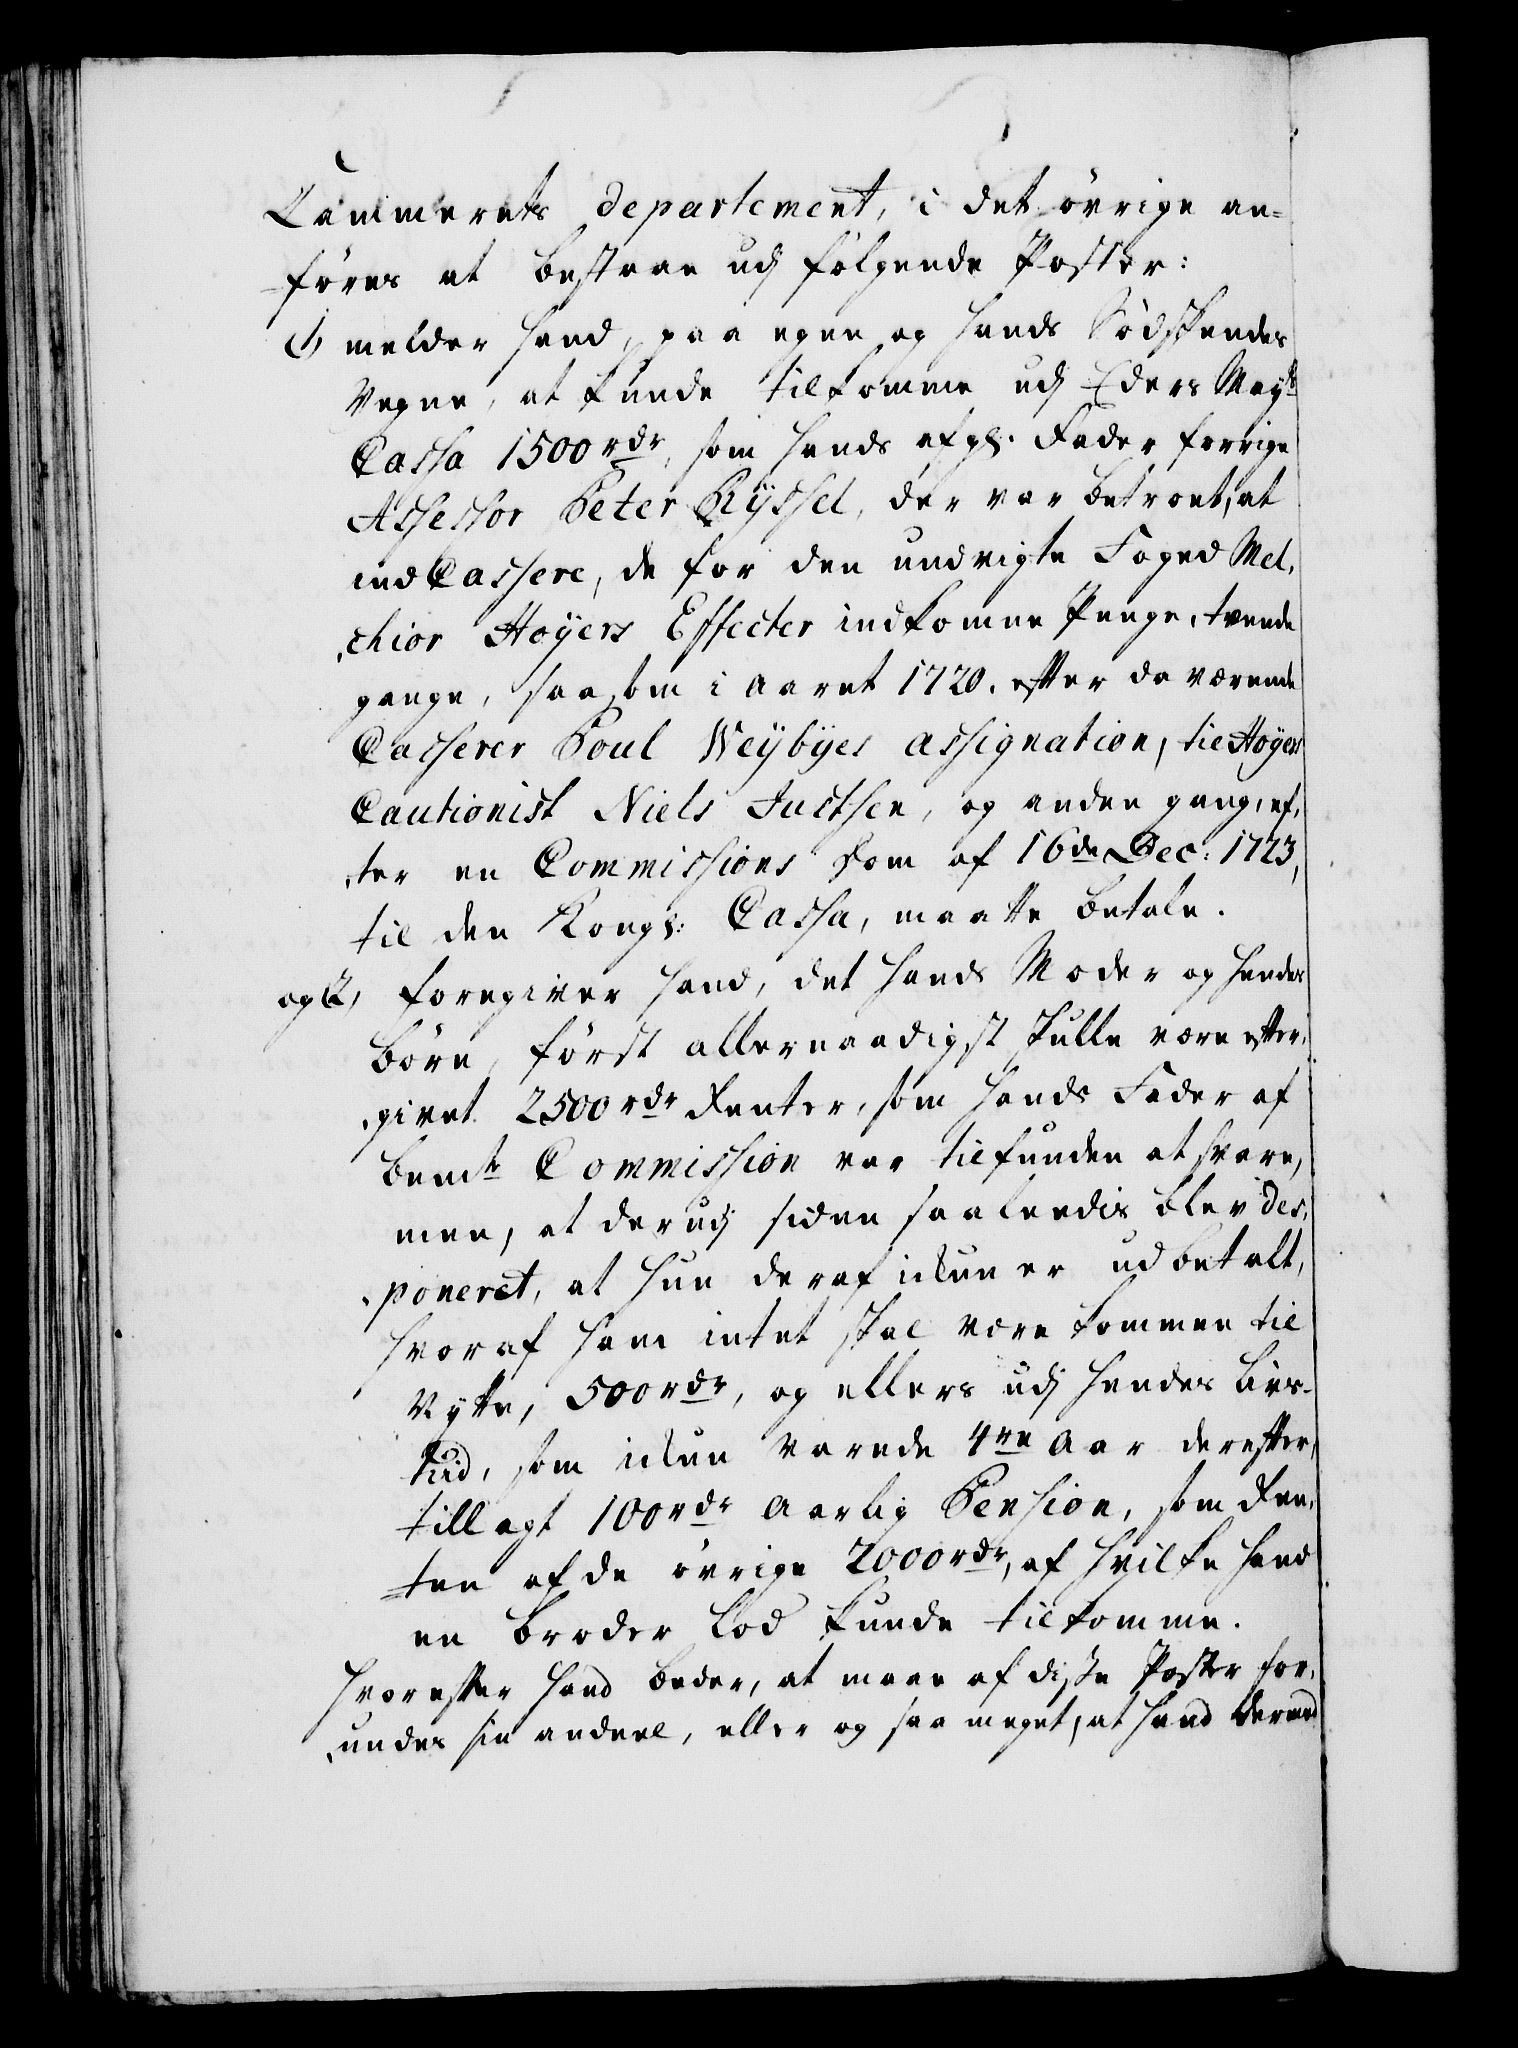 Cammerets departement, i det övrige an-
föres at bestaae udj fölgende Poster:
1, melder hand, paa egne og hands Södskendes
Vegne, at kunde tilkomme udj Eders Mayts
Cassa 1500 rdr, som hands afgl. Fader forrige
Assessor Peter Ryssel, der var betroet, at
indCassere, de for den undvigte Foged Mel,
,chior Hoyers Effecter indkomne Penge, tvende
gange, saasom i Aaret 1720. efter da værende
Casserer Poul Weybyes assignation, til Hoyers
Cautionist Niels Juelsen, og anden gang, ef,
,ter en Commissions Dom af 16de Dec: 1723,
til den Kongl: Cassa, maatte betale.
og 2, foregiver hand, det hands Moder og hendes
Börn, först allernaadigst skulle være efter,
,givet 2500 rdr Renter, som hands Fader af
bemte Commission var tilfunden at svare,
men, at derudj siden saaledis blev des,
,poneret, at hun deraf ickun er udbetalt,
hvoraf ham intet skal være kommen til
Nytte, 500 rdr, og ellers udj hendes Livs-
tiid, som ickun varede 4re Aar derefter,
tillagt 100 rdr Aarlig Pension, som Ren,
=ten af de övrige 2000 rdr, af hvilke hand
en broder Lod kunde tilkomme.
Hvorefter hand beder, at maae af disse Poster for,
,undes sin andeel, eller og saa meget, at hand dermed